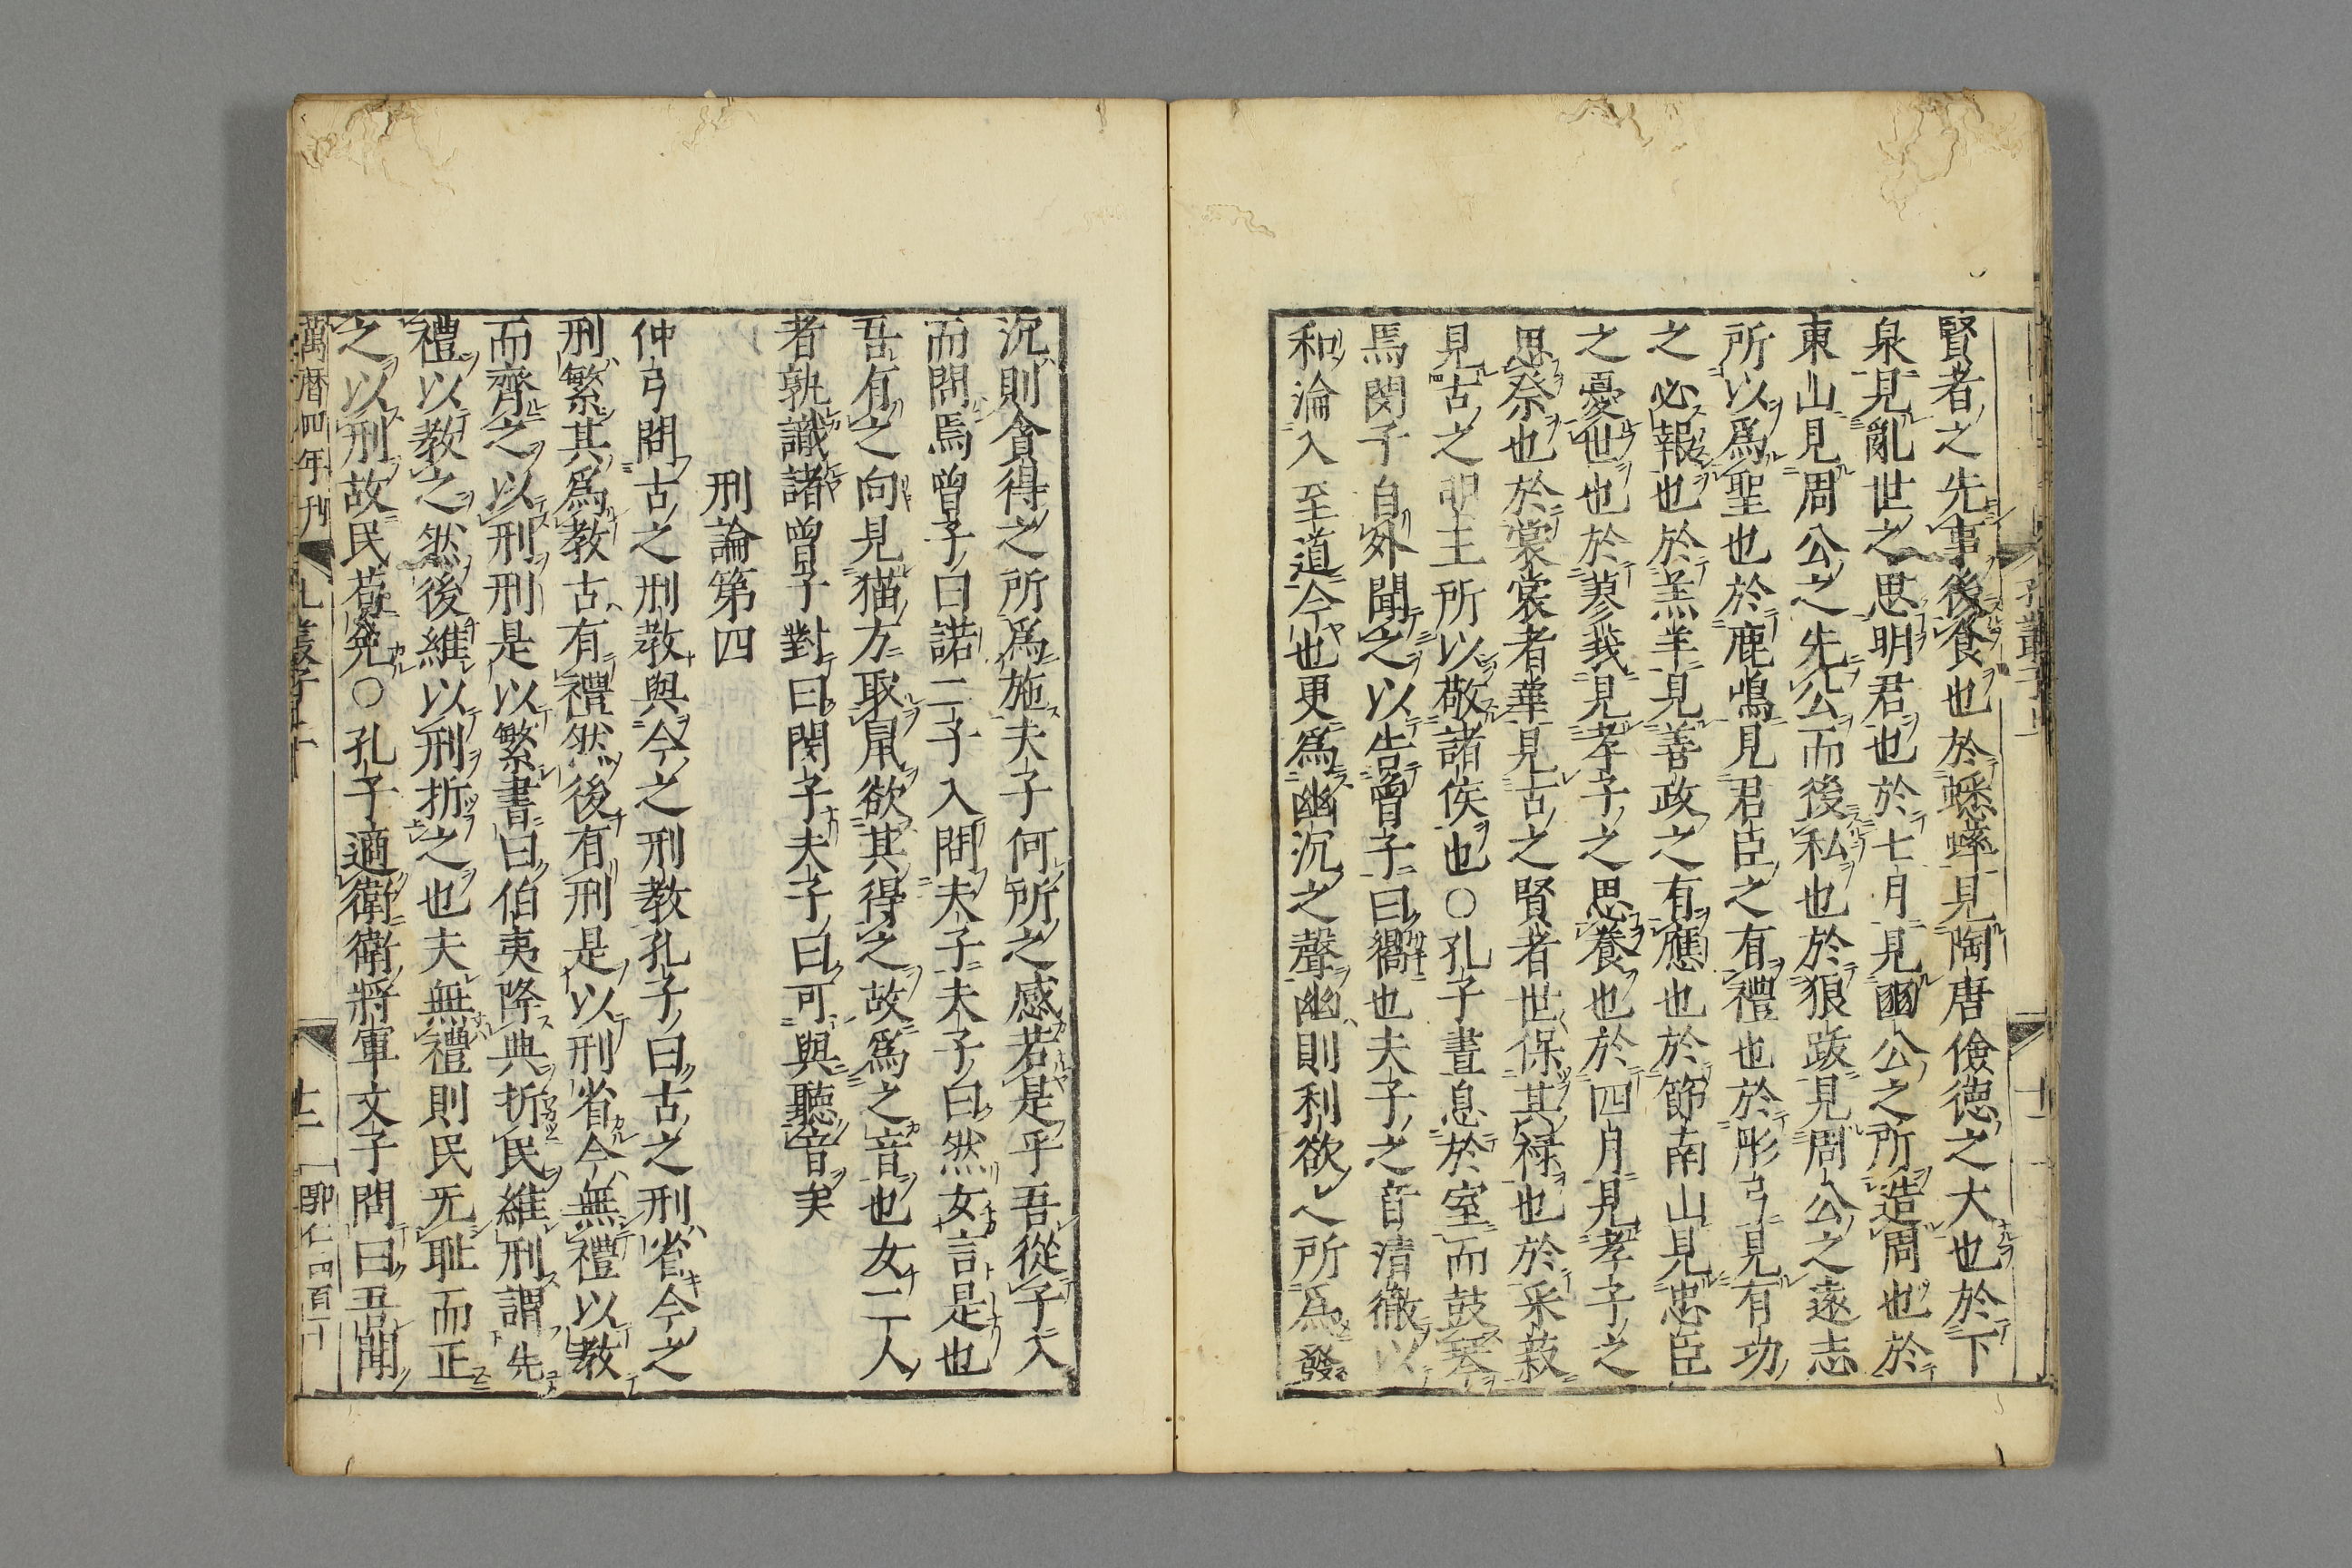 賢者之先事後食也於蟋蟀見陶唐儉德之大也於下
泉見亂世之思明君也於七月見豳公之所造周也於
東山見周公之先公而後私也於狼跋見周公之遠志
所以爲聖也於鹿鳴見君臣之有禮也於彤弓見有功
之必報也於羔羊見善政之有應也於節南山見忠臣
之憂世也於蓼莪見孝子之思養也於四月見孝子之
思祭也於裳裳者華見古之賢者世保其禄也於采菽
見古之明王所以敬諸侯也○孔子晝息於室而鼓琴
焉閔子自外聞之以告曾子曰嚮也夫子之音清徹以
和淪入至道今也更爲幽沉之聲幽則利欲之所爲發
沉則貪得之所爲施夫子何所之感若是乎吾從子入
而問焉曾子曰諾二子入問夫子夫子曰然女言是也
吾有之向見猫方取鼠欲其得之故爲之音也女二人
者孰識諸曾子對曰閔子夫子曰可與聽音矣
刑論第四
仲弓問古之刑教與今之刑教孔子曰古之刑省今之
刑繁其爲教古有禮然後有刑是以刑省今無禮以教
而齊之以刑刑是以繁書曰伯夷降典折民維刑謂先
禮以教之然後維以刑折之也夫無禮則民无耻而正
之以刑故民苟免○孔子適衛衛將軍文子問曰吾聞
萬曆四年刊
孔叢子上
十二